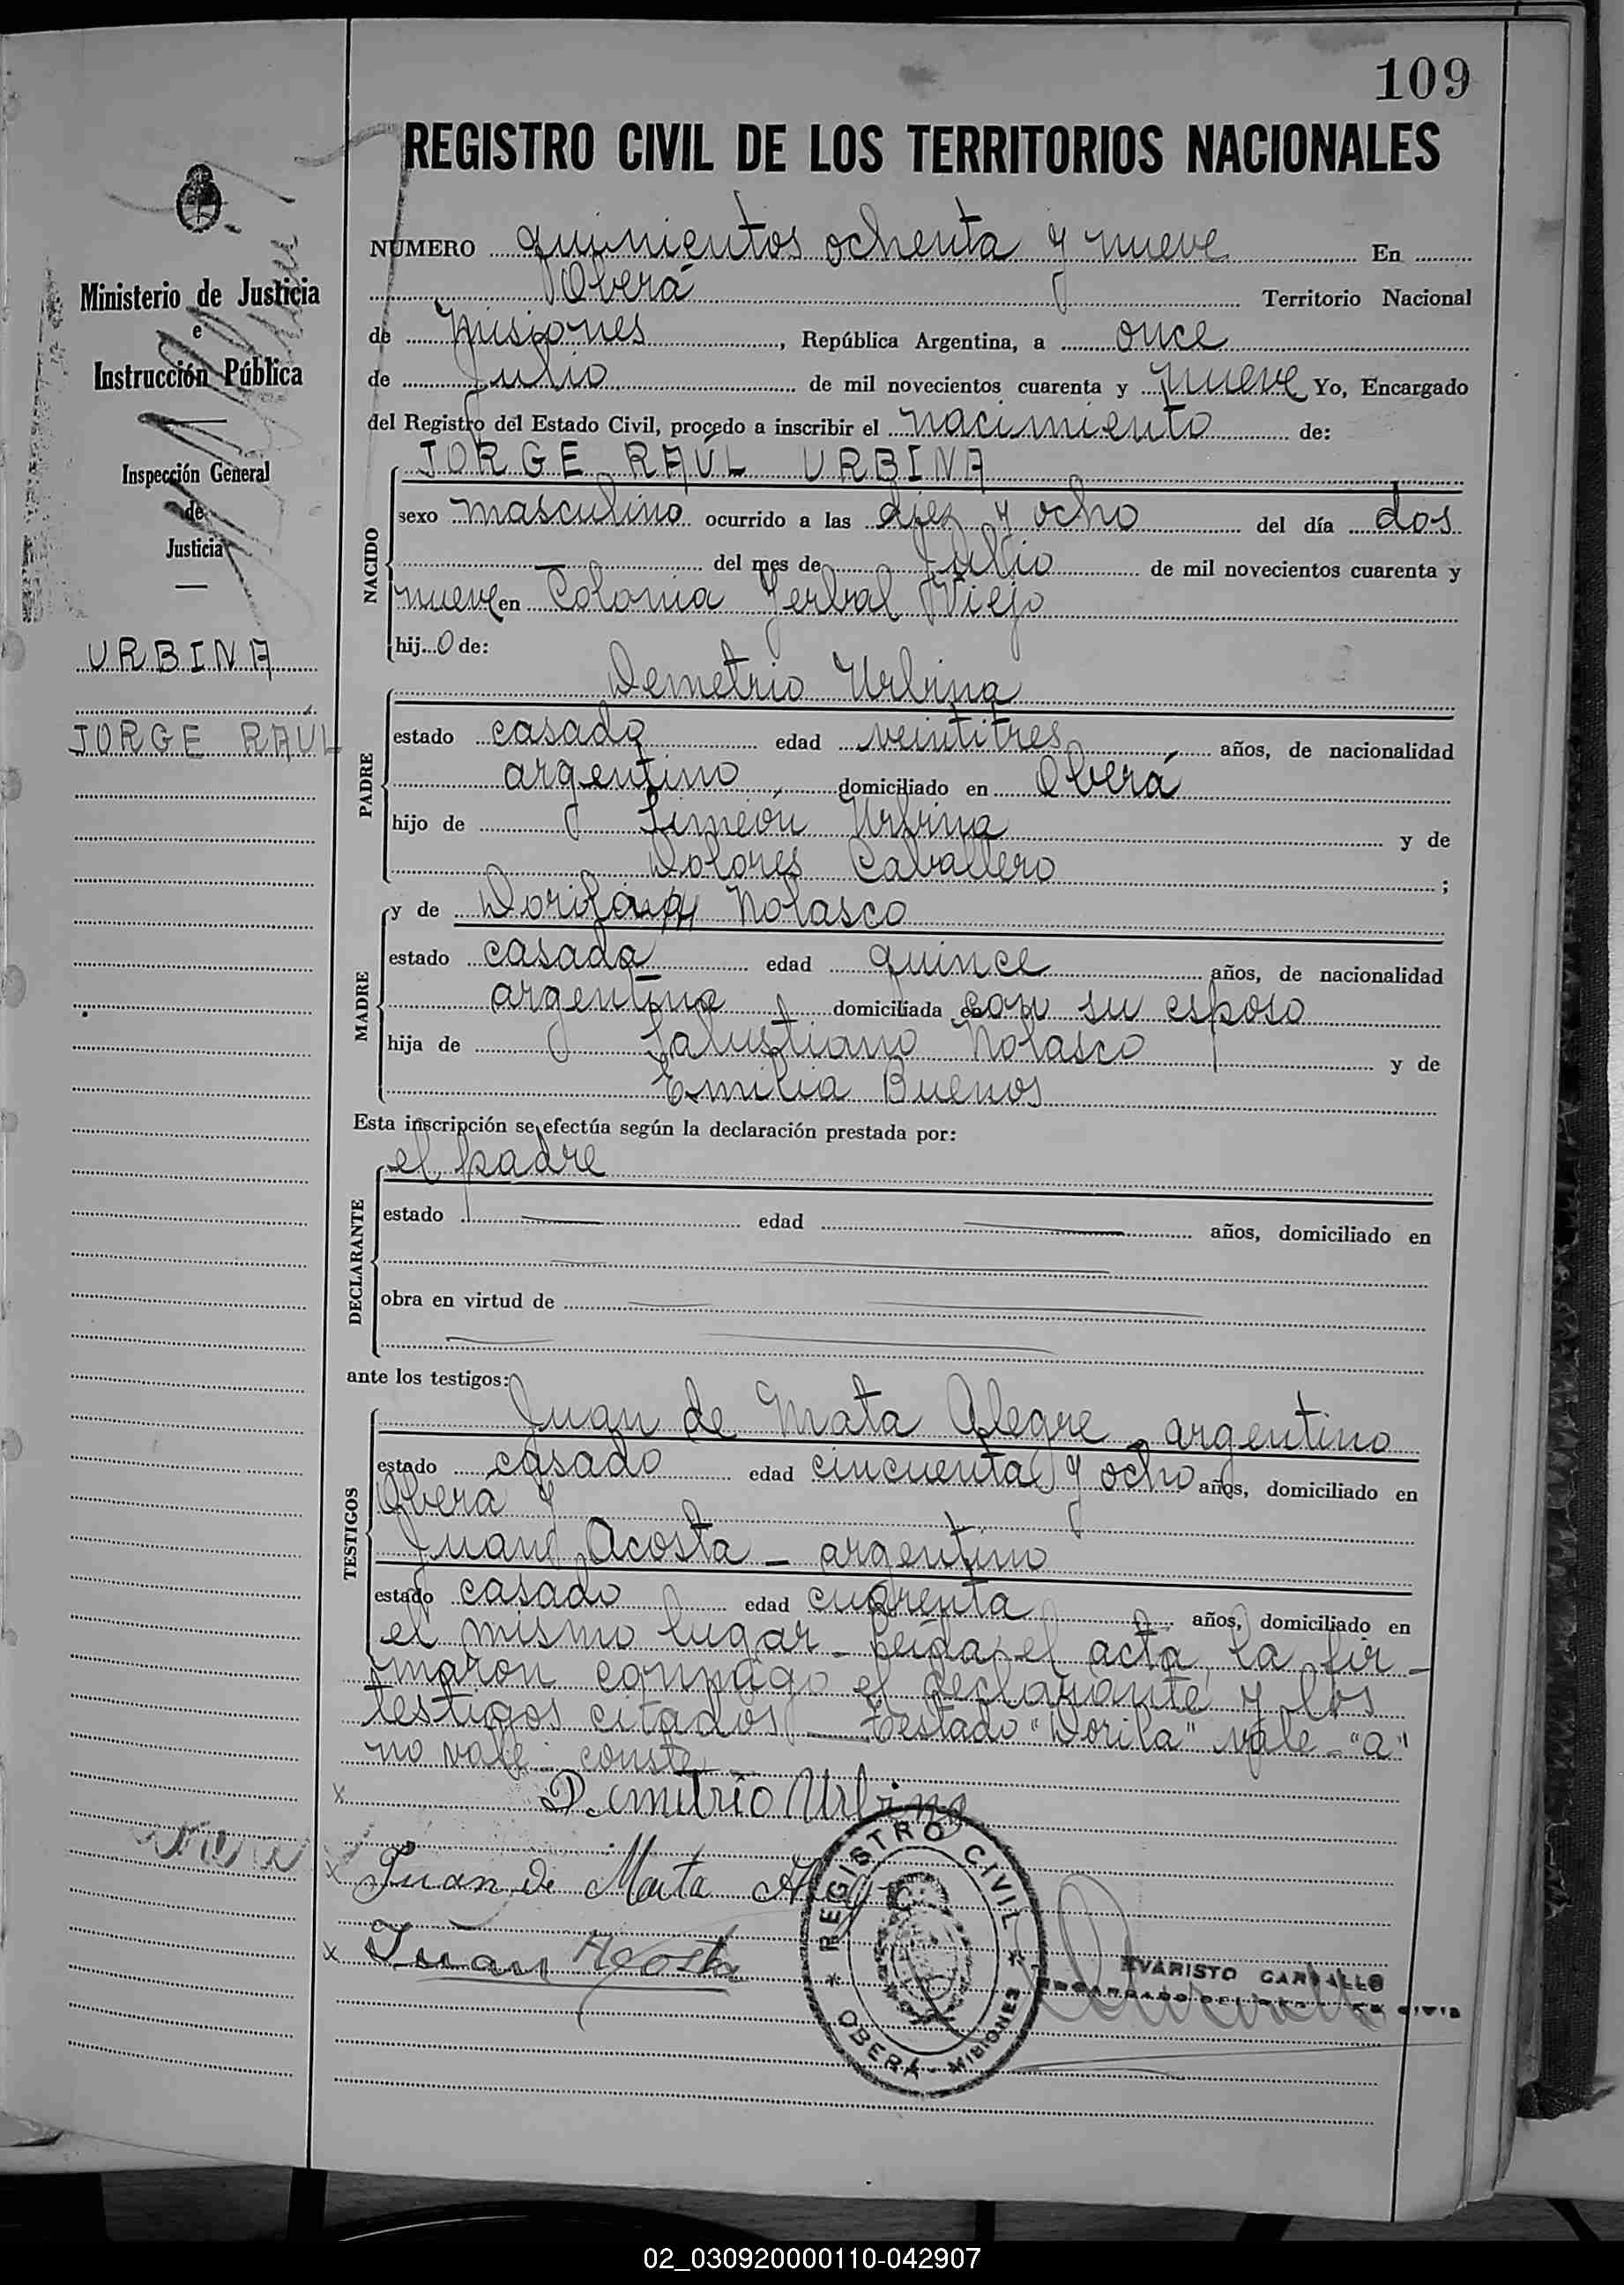 109
REGISTRO CIVIL DE LOS TERRITORIOS NACIONALES
Ministerio de Justicia
e
Instrucción Pública
Inspección General
de
Justicia
URBINA
JORGE RAÚL
NUMERO quinientos ochenta y nueve En
Oberá Territorio Nacional
de Misiones, República Argentina, a once
de Julio de mil novecientos cuarenta y nueve Yo, Encargado
del Registro del Estado Civil, procedo a inscribir el nacimiento de:
JORGE RAÚL URBINA
NACIDO
sexo masculino ocurrido a las diez y ocho del día dos
del mes de Julio de mil novecientos cuarenta y
nueve en Colonia Yerbal Viejo
hijo de:
PADRE
Demetrio Urbina
estado casado edad veintitres años, de nacionalidad
argentino domiciliado en Oberá
hijo de Simeón Urbina y de
Dolores Caballero;
MADRE
y de Nolasco
estado casada edad quince años, de nacionalidad
argentina domiciliada con su esposo
hija de Salustiano Nolasco y de
Emilia Buenos
Esta inscripción se efectúa según la declaración prestada por:
DECLARANTE
el padre
estado edad años, domiciliado en
obra en virtud de
ante los testigos:
TESTIGOS
Juan de Mata Alegre argentino
estado casado edad cincuenta y ocho años, domiciliado en
Oberá y
Juan Acosta - argentino
estado casado edad cuarenta años, domiciliado en
el mismo lugar - Leída el acta, la fir-
maron conmigo el declarante y los
testigos citados - Testado "Dorila" vale - "a"
no vale - conste
x Demetrio Urbina
x Juan de Mata
x Juan Acosta
REGISTRO CIVIL
OBERÁ - MISIONES
EVARISTO CARVALLO
02_030920000110-042907